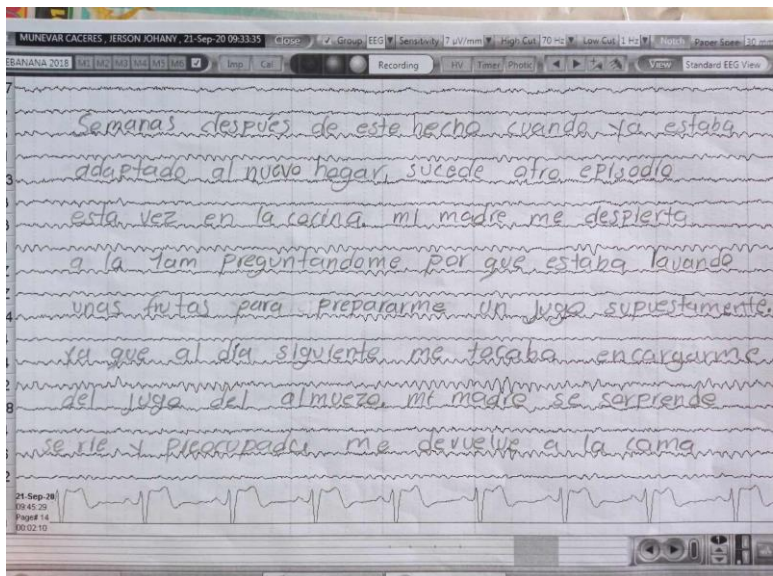 MUNEVAR CACERES, JERSON JOHANY , 21-Sep-20 09:33:35 Close Group EEG Sensitivity 7 µV/mm High Cut 70 Hz Low Cut 1 Hz Notch Paper Spee 30 mm
EBANANA 2018 M1 M2 M3 M4 M5 M6 Imp Cal Recording HV Timer Photic View Standard EEG View
Semanas después de este hecho cuando ya estaba
adaptado al nuevo hogar, sucede otro episodio
esta vez en la cocina. mi madre me despierta
a la 1am preguntandome por que estaba lavando
unas frutas para prepararme un jugo supuestamente.
ya que al día siguiente me tocaba encargarme
del jugo del almuezo. mi madre se sorprende
se rie y preocupada me devuelve a la cama
21-Sep-20
09:45:29
Page# 14
00:02:10